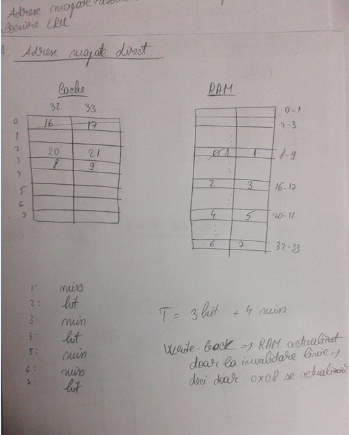 Adrese mapate
1. Adrese mapate direct
Cache
RAM
32 33
0 16 17
1
2 20 21
3 8 9
4
5
6
7
0-1
2-3
0 1 8-9
2 3 16-17
4 5 20-21
6 7 32-33
1: miss
2: hit
3: miss
4: hit
5: miss
6: miss
7: hit
T = 3 hit + 4 miss
Write-back => RAM actualizat
doar la invalidare linie =>
deci doar 0x08 se actualizează